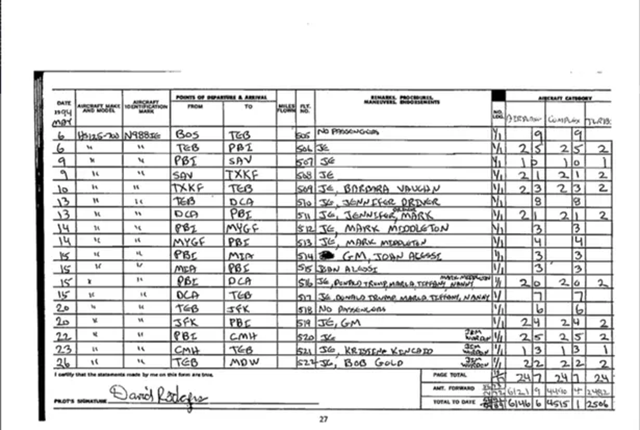 DATE AIRCRAFT MAKE AND MODEL AIRCRAFT IDENTIFICATION MARK POINTS OF DEPARTURE & ARRIVAL FROM TO MILES FLOWN FLT. NO. REMARKS, PROCEDURES, MANEUVERS, ENDORSEMENTS AIRCRAFT CATEGORY
1994 MAY
6 HS125-700 N988JE BOS TEB 505 NO PASSENGERS 1/1 9 9
6 " " TEB PBI 506 JE 1/1 2 5 2 5 2
9 " " PBI SAV 507 JE 1/1 1 0 1 0 1
9 " " SAV TXKF 508 JE 1/1 2 1 2 1 2
10 " " TXKF TEB 509 JE, BARBARA VAUGHN 1/1 2 3 2 3 2
13 " " TEB DCA 510 JE, JENNIFER DRIVER 1/1 8 8
13 " " DCA PBI 511 JE, JENNIFER, MARK 1/1 2 1 2 1 2
14 " " PBI MYGF 512 JE, MARK MIDDLETON 1/1 3 3
14 " " MYGF PBI 513 JE, MARK MIDDLETON 1/1 4 4
15 " " PBI MIA 514 GM, JOHN ALESSI 1/1 3 3
15 " " MIA PBI 515 JOHN ALESSI 1/1 3 3
15 " " PBI DCA 516 JE, DONALD TRUMP, MARLA, TIFFANY, NANNY MARK MIDDLETON 1/1 2 0 2 0 2
15 " " DCA TEB 517 JE, DONALD TRUMP, MARLA, TIFFANY, NANNY 1/1 7 7
20 " " TEB JFK 518 NO PASSENGERS 1/1 6 6
20 " " JFK PBI 519 JE, GM 1/1 2 4 2 4 2
22 " " PBI CMH 520 JE 1/1 2 5 2 5 2
23 " " CMH TEB 521 JE, 1/1 1 3 1 3 1
26 " " TEB MDW 522 JE, BOB GOLD 1/1 2 2 2 2 2
I certify that the statements made by me on this form are true.
PAGE TOTAL 24 7 24 7 24
AMT. FORWARD
PILOT'S SIGNATURE David Rodgers
TOTAL TO DATE 6146 6 4515 1 2506
27